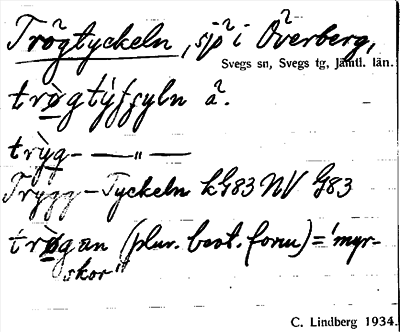 Trögtyckeln, sjö i Överberg,
Svegs sn, Svegs tg, Jämtl. län.
trø̀gtýfsyln å.
trỳg- — „ —
Trygg-Tyckeln LG83 NV G83
trø̀gan (plur. best. form) = 'myr-
skor'
C. Lindberg 1934.